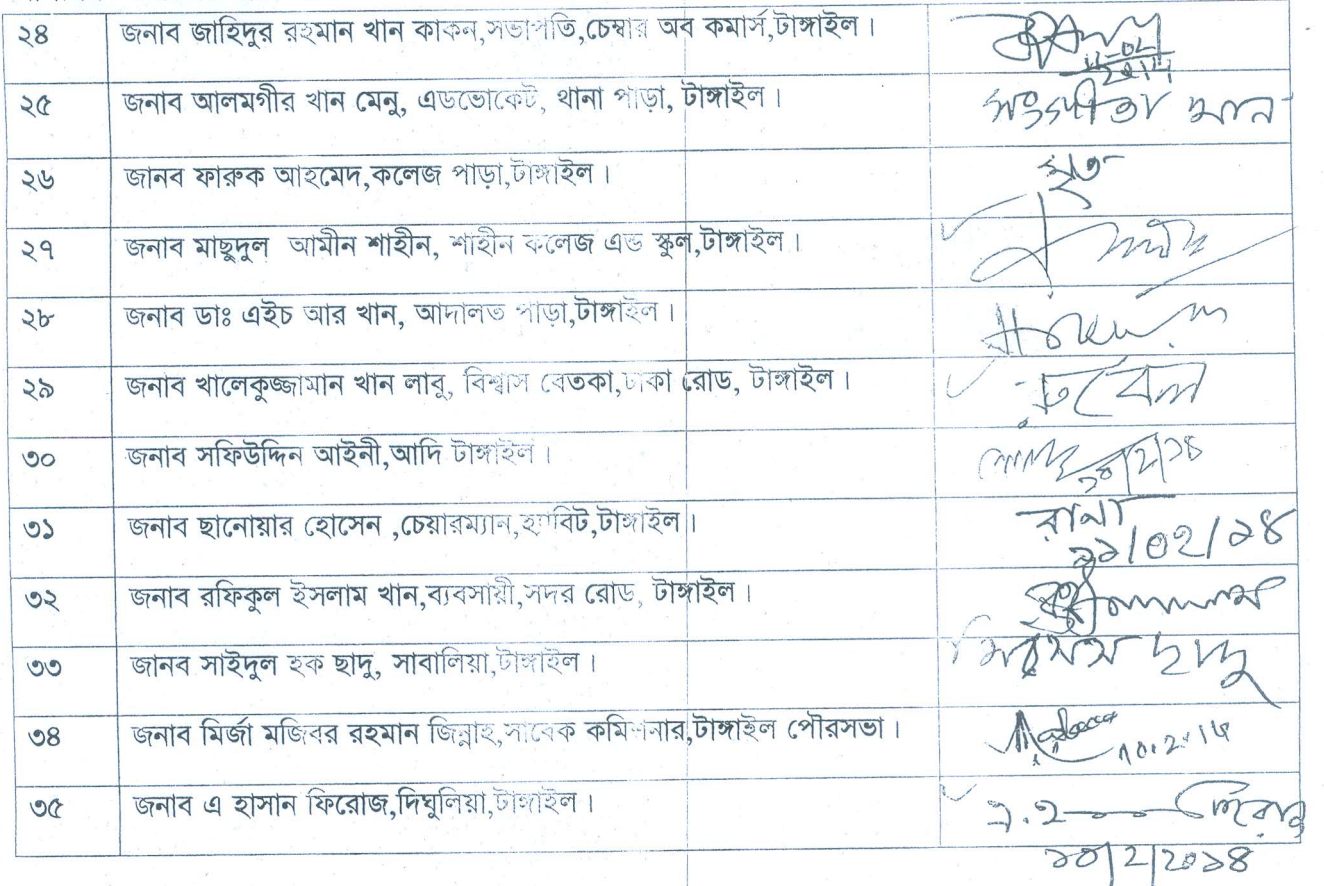 ২৪ জনাব জাহিদুর রহমান খান কাকন,সভাপতি,চেম্বার অব কমার্স,টাঙ্গাইল।
২৫ জনাব আলমগীর খান মেনু, এডভোকেট, থানা পাড়া, টাঙ্গাইল।
২৬ জানব ফারুক আহমেদ,কলেজ পাড়া,টাঙ্গাইল। মৃত
২৭ জনাব মাছুদুল আমীন শাহীন, শাহীন কলেজ এন্ড স্কুল,টাঙ্গাইল।
২৮ জনাব ডাঃ এইচ আর খান, আদালত পাড়া,টাঙ্গাইল।
২৯ জনাব খালেকুজ্জামান খান লাবু, বিশ্বাস বেতকা,ঢাকা রোড, টাঙ্গাইল। রুবেল
৩০ জনাব সফিউদ্দিন আইনী,আদি টাঙ্গাইল। ১০/2/১৪
৩১ জনাব ছানোয়ার হোসেন ,চেয়ারম্যান,হাবিট,টাঙ্গাইল। রানা
১১/০২/১৪
৩২ জনাব রফিকুল ইসলাম খান,ব্যবসায়ী,সদর রোড, টাঙ্গাইল।
৩৩ জানব সাইদুল হক ছাদু, সাবালিয়া,টাঙ্গাইল। ছাদু
৩৪ জনাব মির্জা মজিবর রহমান জিন্নাহ,সাবেক কমিশনার,টাঙ্গাইল পৌরসভা। 10.2.14
৩৫ জনাব এ হাসান ফিরোজ,দিঘুলিয়া,টাঙ্গাইল। এ.হ ফিরোজ
১০/2/2০১৪